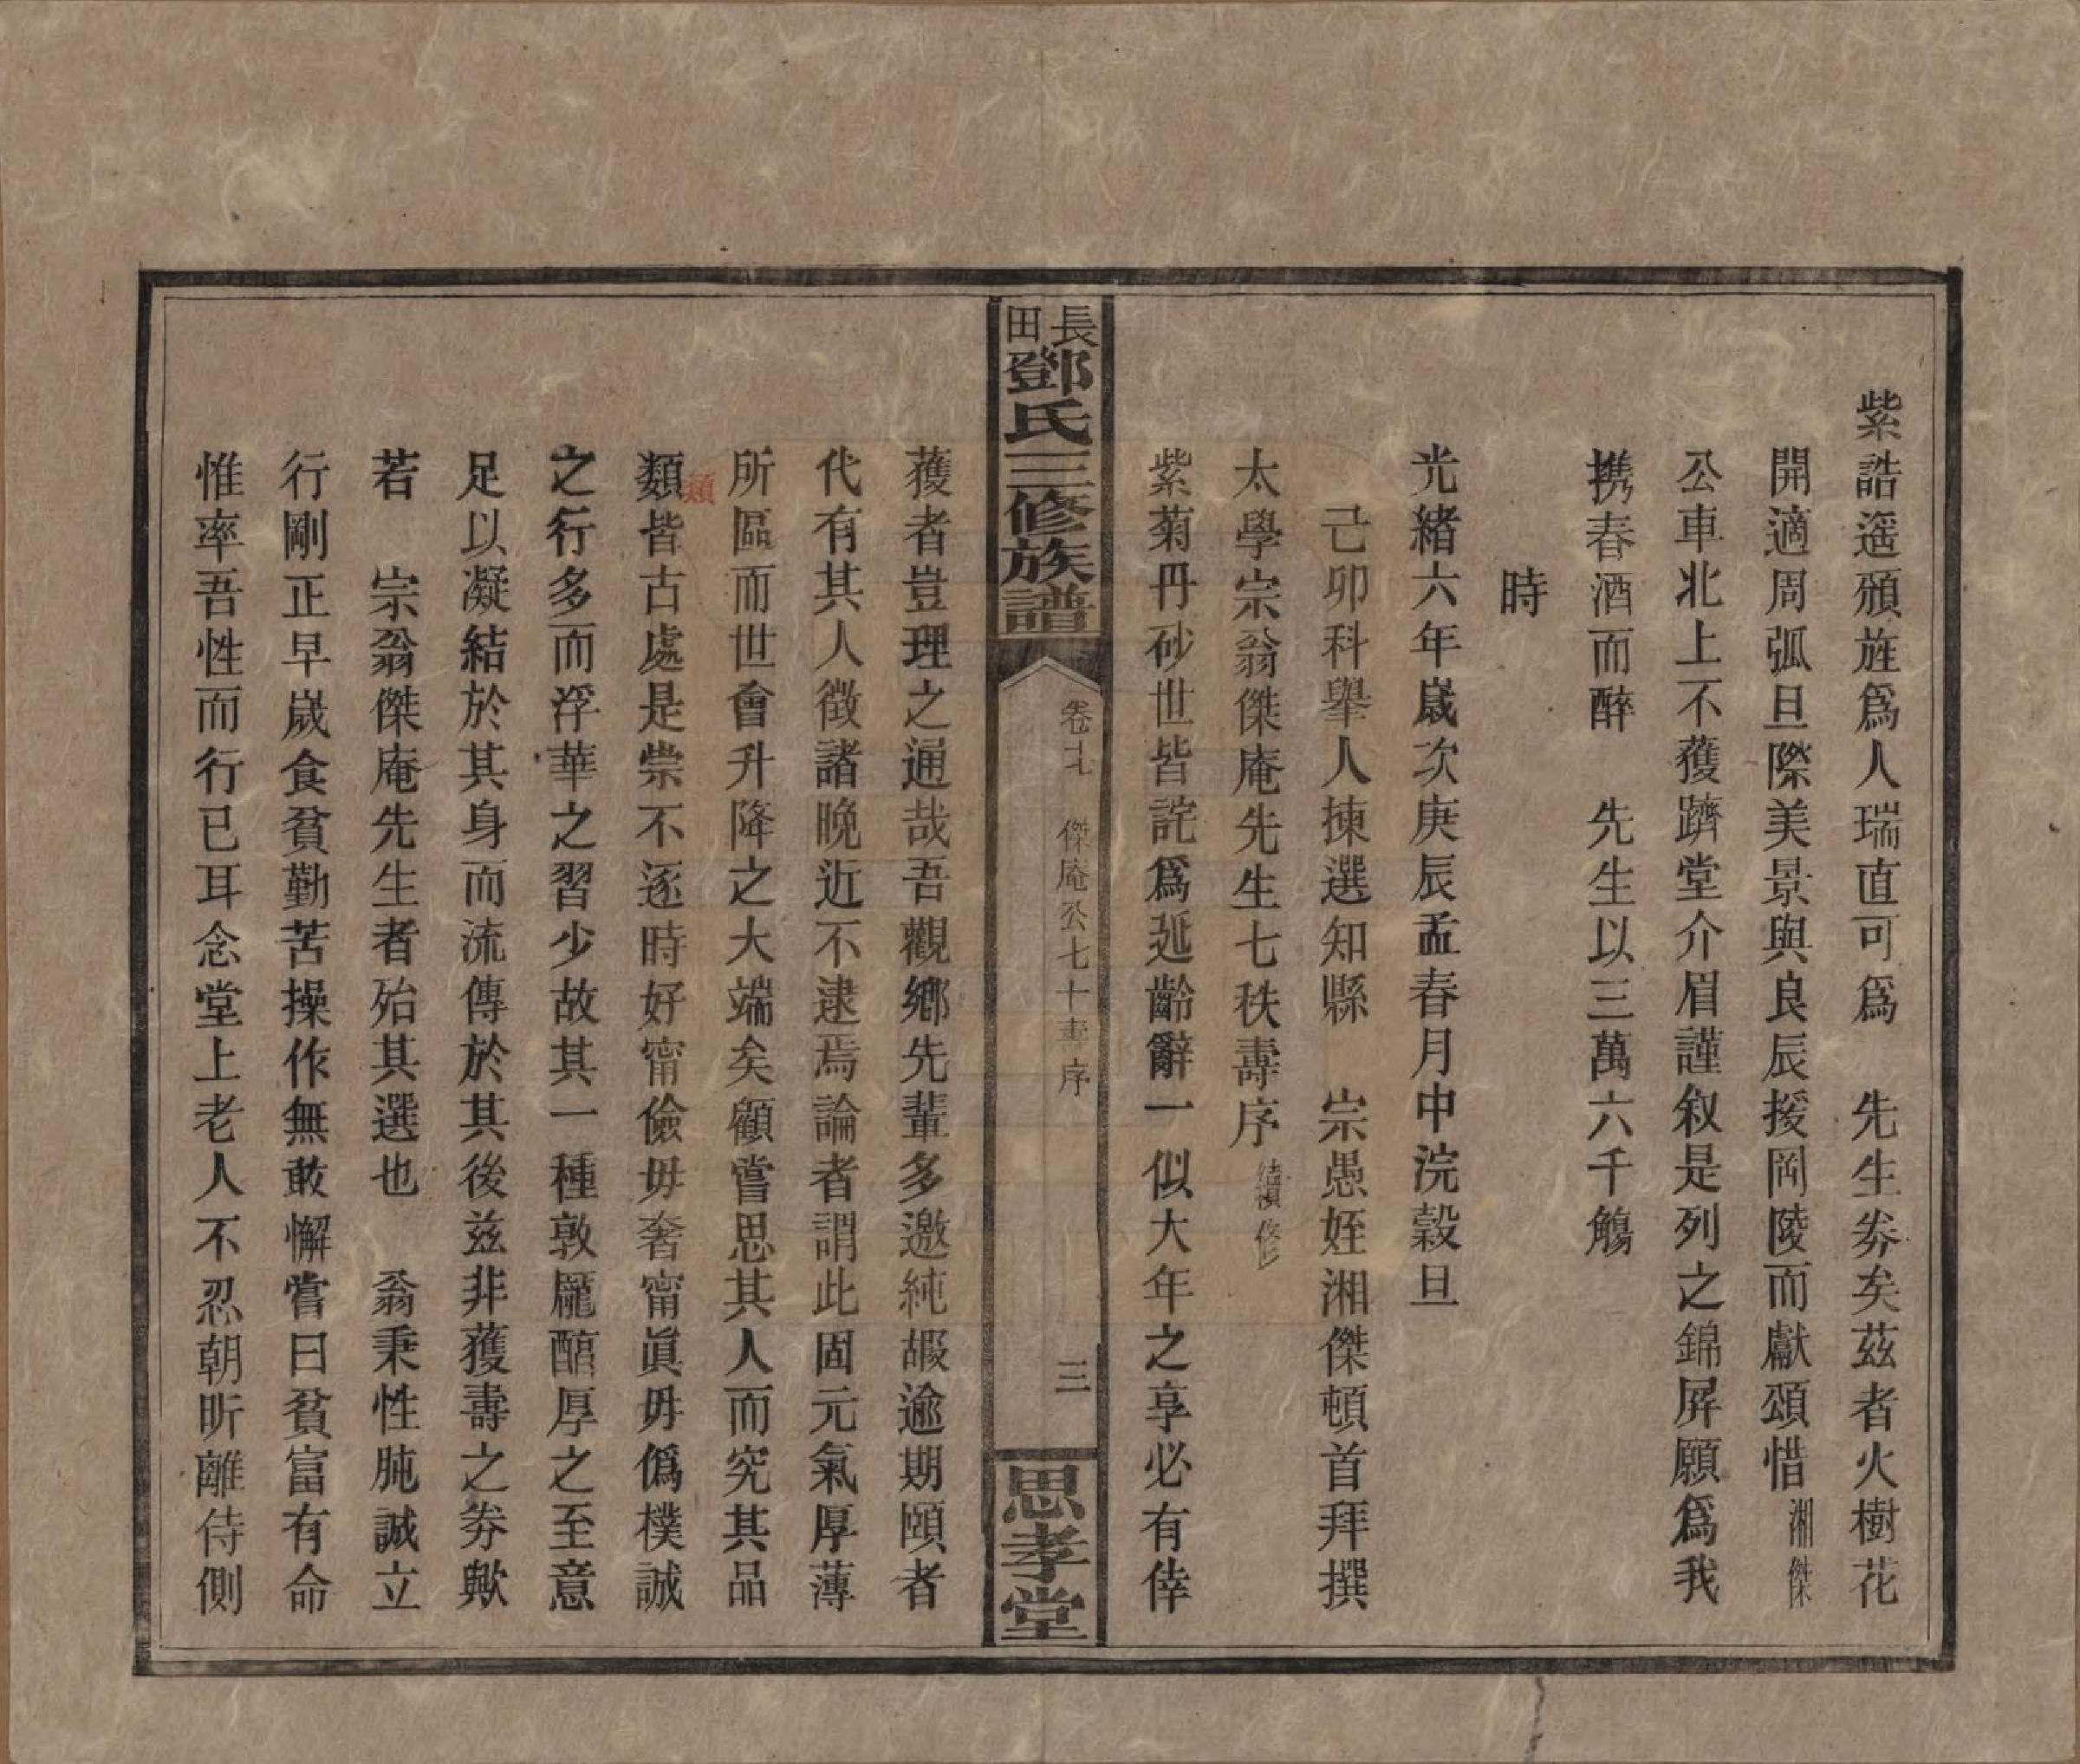 紫誥遥頒旌爲人瑞直可爲　先生券矣茲者火樹花
開適周弧旦際美景與良辰援岡陵而獻頌惜湘傑
公車北上不獲躋堂介眉謹叙是列之錦屏願爲我
携春酒而醉　先生以三萬六千觴
時
光緒六年歲次庚辰孟春月中浣穀旦
己卯科舉人揀選知縣　宗愚姪湘傑頓首拜撰
太學宗翁傑庵先生七秩壽序
紫菊丹砂世皆詫爲延齡辭一似大年之享必有倖
長田鄧氏三修族譜
傑庵公七十壽序
三
思孝堂
蒦者豈理之通哉吾觀鄉先輩多邀純嘏逾期頤者
代有其人徵諸晚近不逮焉論者謂此固元氣厚薄
所區而世會升降之大端矣顧嘗思其人而究其品
類皆古處是崇不逐時好甯儉毋奢甯眞毋僞樸誠
類
之行多而浮華之習少故其一種敦龎醕厚之至意
足以凝結於其身而流傳於其後兹非獲壽之券歟
若　宗翁傑庵先生者殆其選也　翁秉性肫誠立
行剛正早歲食貧勤苦操作無敢懈嘗曰貧富有命
惟率吾性而行已耳念堂上老人不忍朝昕離侍側